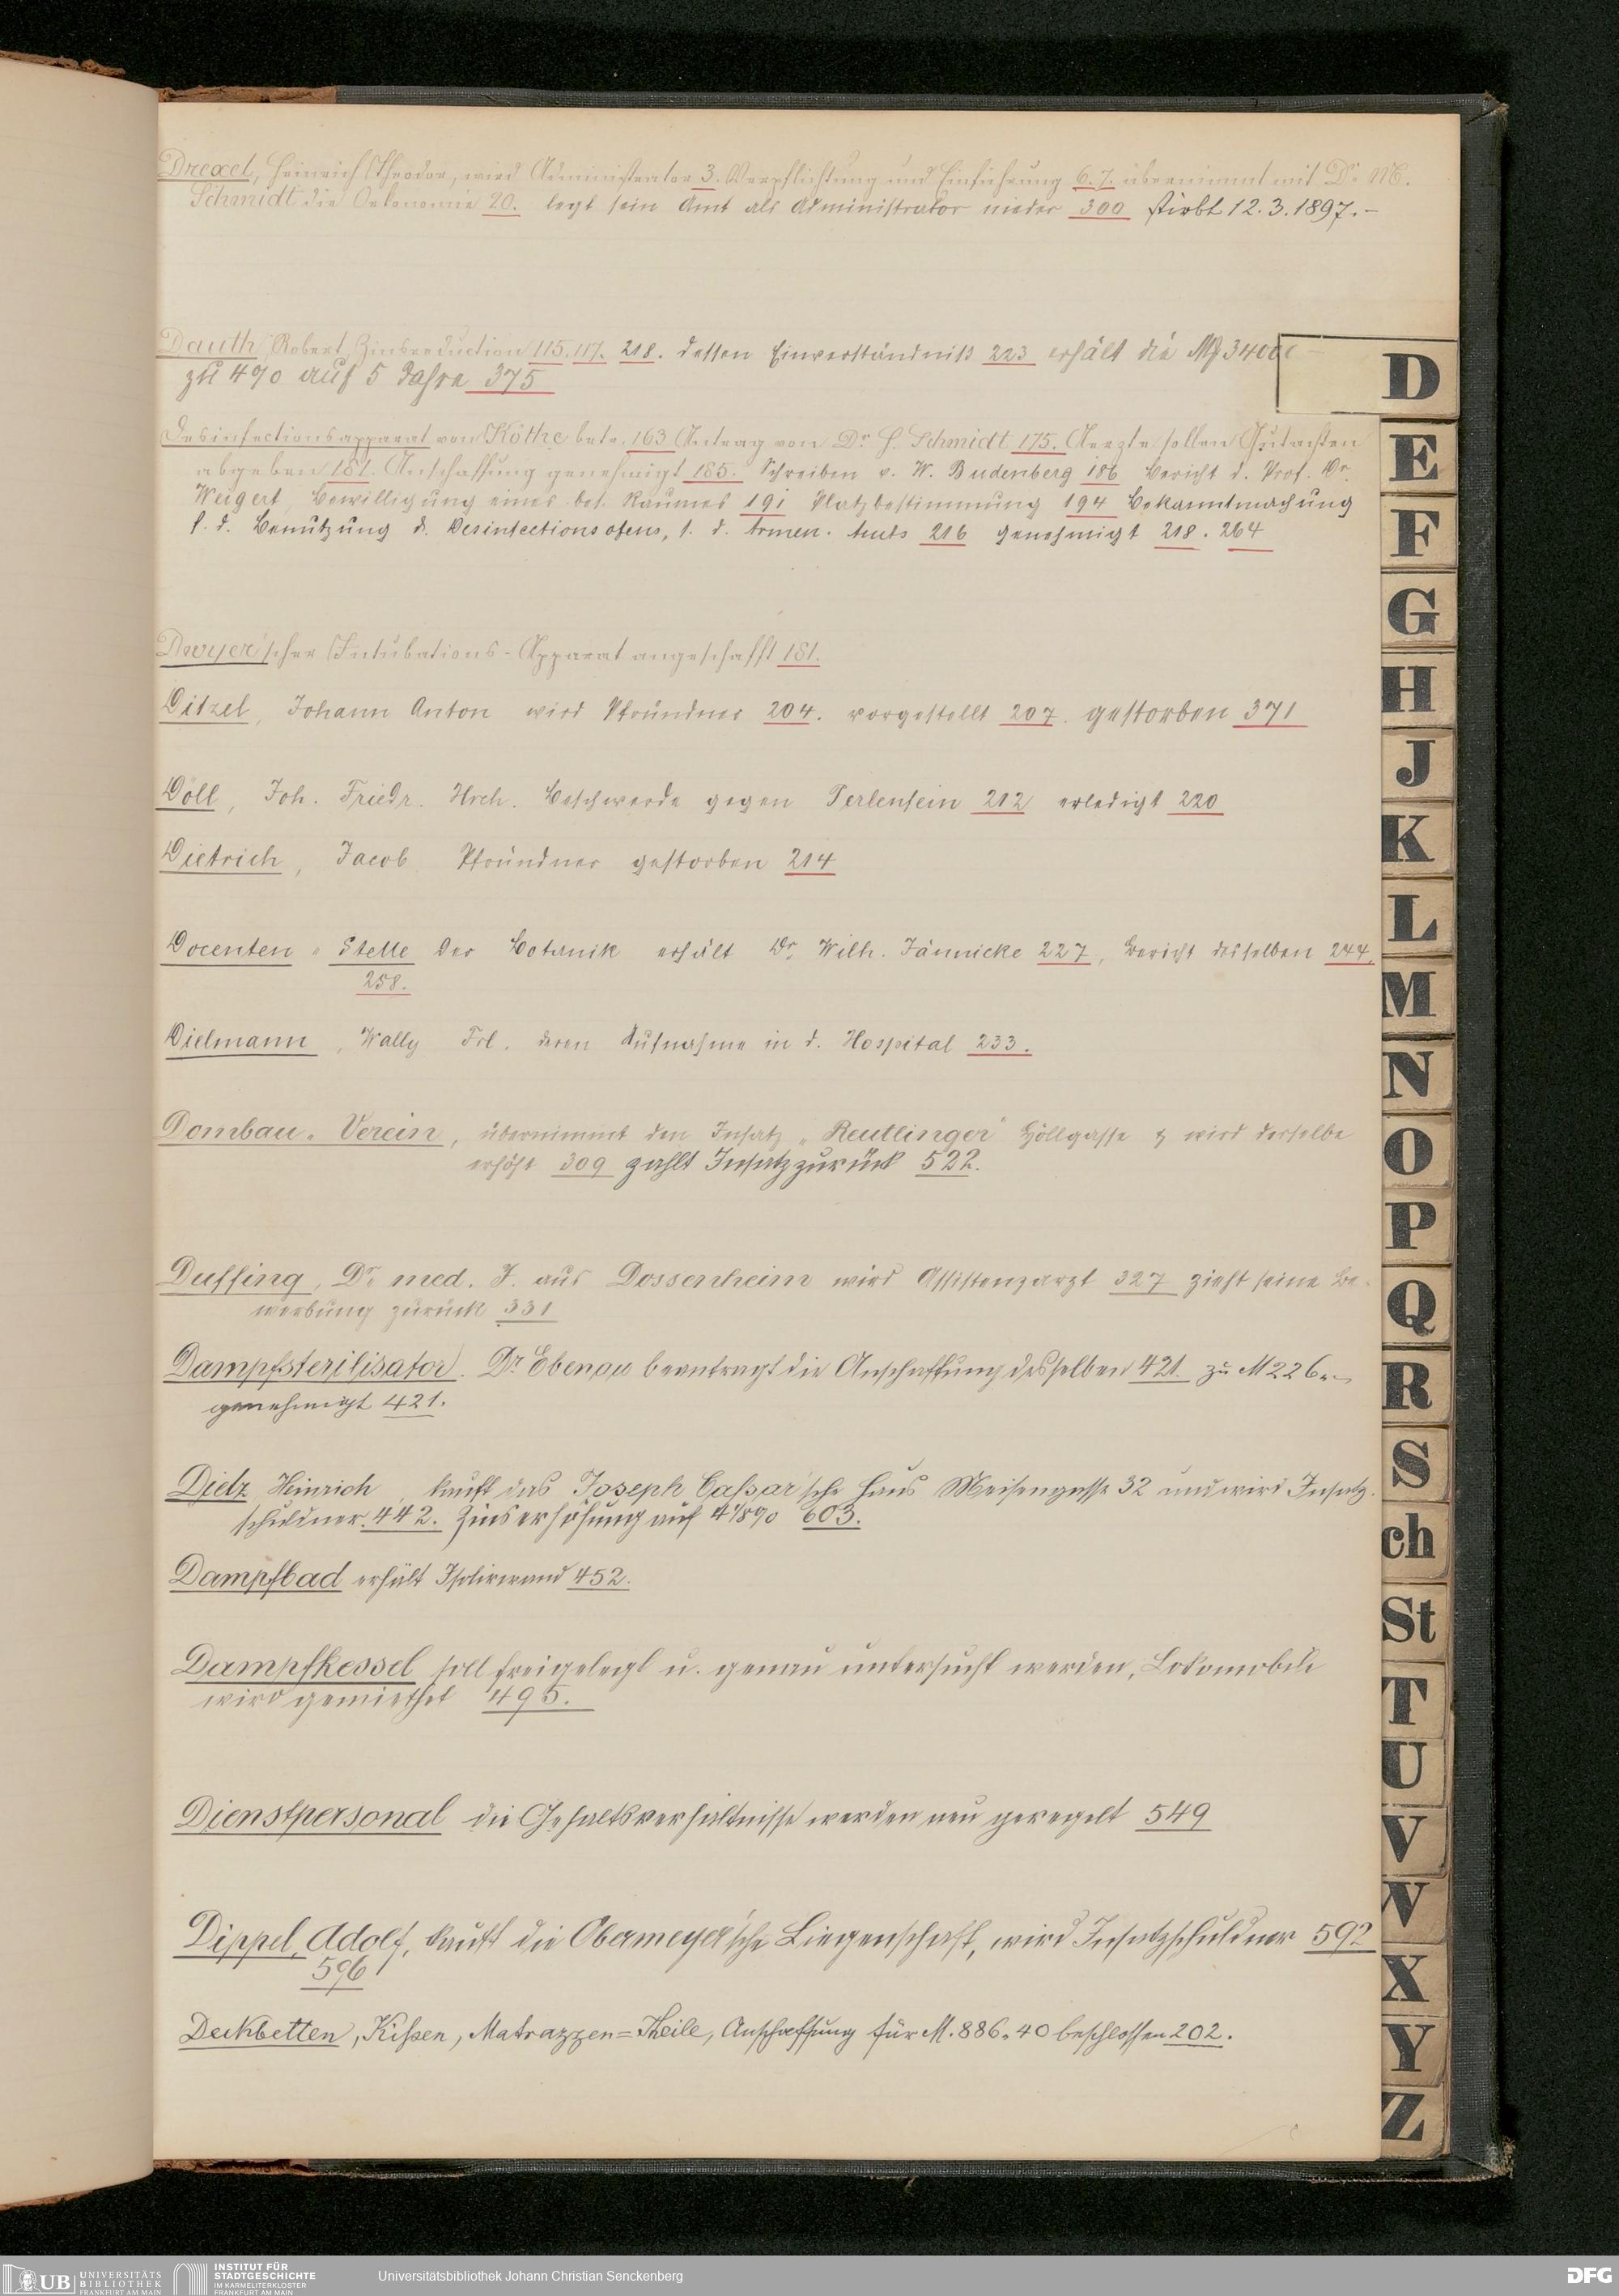 Drexel, Heinrich Theodor, wird Administrator 3. Verpflichtung und Einführung 6. 7. übernimmt mit Dr. M.
Schmidt die Oekonomie 20. legt sein Amt als Administrator nieder 300 stirbt 12. 3. 1897. –
Dauth Robert, Zinsreduction 115. 117. 218. dessen Einverständniß 223 erhält die
zu 4% auf 5 Jahre 375
D
Desinfectionsapparat von Köthe betr. 163 Antrag von Dr. H. Schmidt 175. Aerzte sollen Gutachten
abgeben 181. Anschaffung genehmigt 185. Schreiben v. W. Budenberg 186 Bericht d. Prof. Dr.
Weigert, Bewilligung eines bes. Raumes 191 Platzbestimmung 194 Bekanntmachung
f. d. Benützung d. Desinfectionsofens, s. d. Armen. Amts 216 genehmigt 218. 264
Dwyer'scher Intubations-Apparat angeschafft 181.
Ditzel, Johann Anton wird Pfründner 204. vorgestellt 207. gestorben 371
Döll, Joh. Friedr. Hrch. Beschwerde gegen Perlensein 212 erledigt 220
Dietrich, Jacob Pfründner gestorben 214
Docenten-Stelle der Botanik erhält Dr. Wilh. Jännicke 227, Bericht desselben 244.
258.
Dielmann, Wally Frl. deren Aufnahme in d. Hospital 233.
Dombau-Verein, übernimmt den Insatz „Reutlinger" Höllgasse & wird derselbe
erhöht 309 zahlt Insatz zurück 522.
Duffing, Dr. med. J. aus Dossenheim wird Assistenzarzt 327 zieht seine Be-
werbung zurück 331
Dampfsterilisator. Dr. Ebenau beantragt die Anschaffung desselben 421. zu M 226.–
genehmigt 421.
Dietz Heinrich, kauft das Joseph Caßpar'sche Haus Meisengasse 32 und wird Insatz-
schuldner. 442. Zinserhöhung auf 4 1/8% 603.
Dampfbad erhält Isolirwand 452.
Dampfkessel soll freigelegt u. genau untersucht werden, Lokomobile
wird gemiethet 495.
Dienstpersonal die Gehaltsverhältnisse werden neu geregelt 549
Dippel, Adolf, kauft die Obermeyer'sche Liegenschaft, wird Insatzschuldner 592
596
Deckbetten, Kißen, Matrazzen=Theile, Anschaffung für M. 886.40 beschlossen 202.
E
F
G
H
J
K
L
M
N
O
P
Q
R
S
ch
St
T
U
V
W
X
Y
Z
UB UNIVERSITÄTS
BIBLIOTHEK
FRANKFURT AM MAIN
INSTITUT FÜR
STADTGESCHICHTE
IM KARMELITERKLOSTER
FRANKFURT AM MAIN
Universitätsbibliothek Johann Christian Senckenberg
DFG